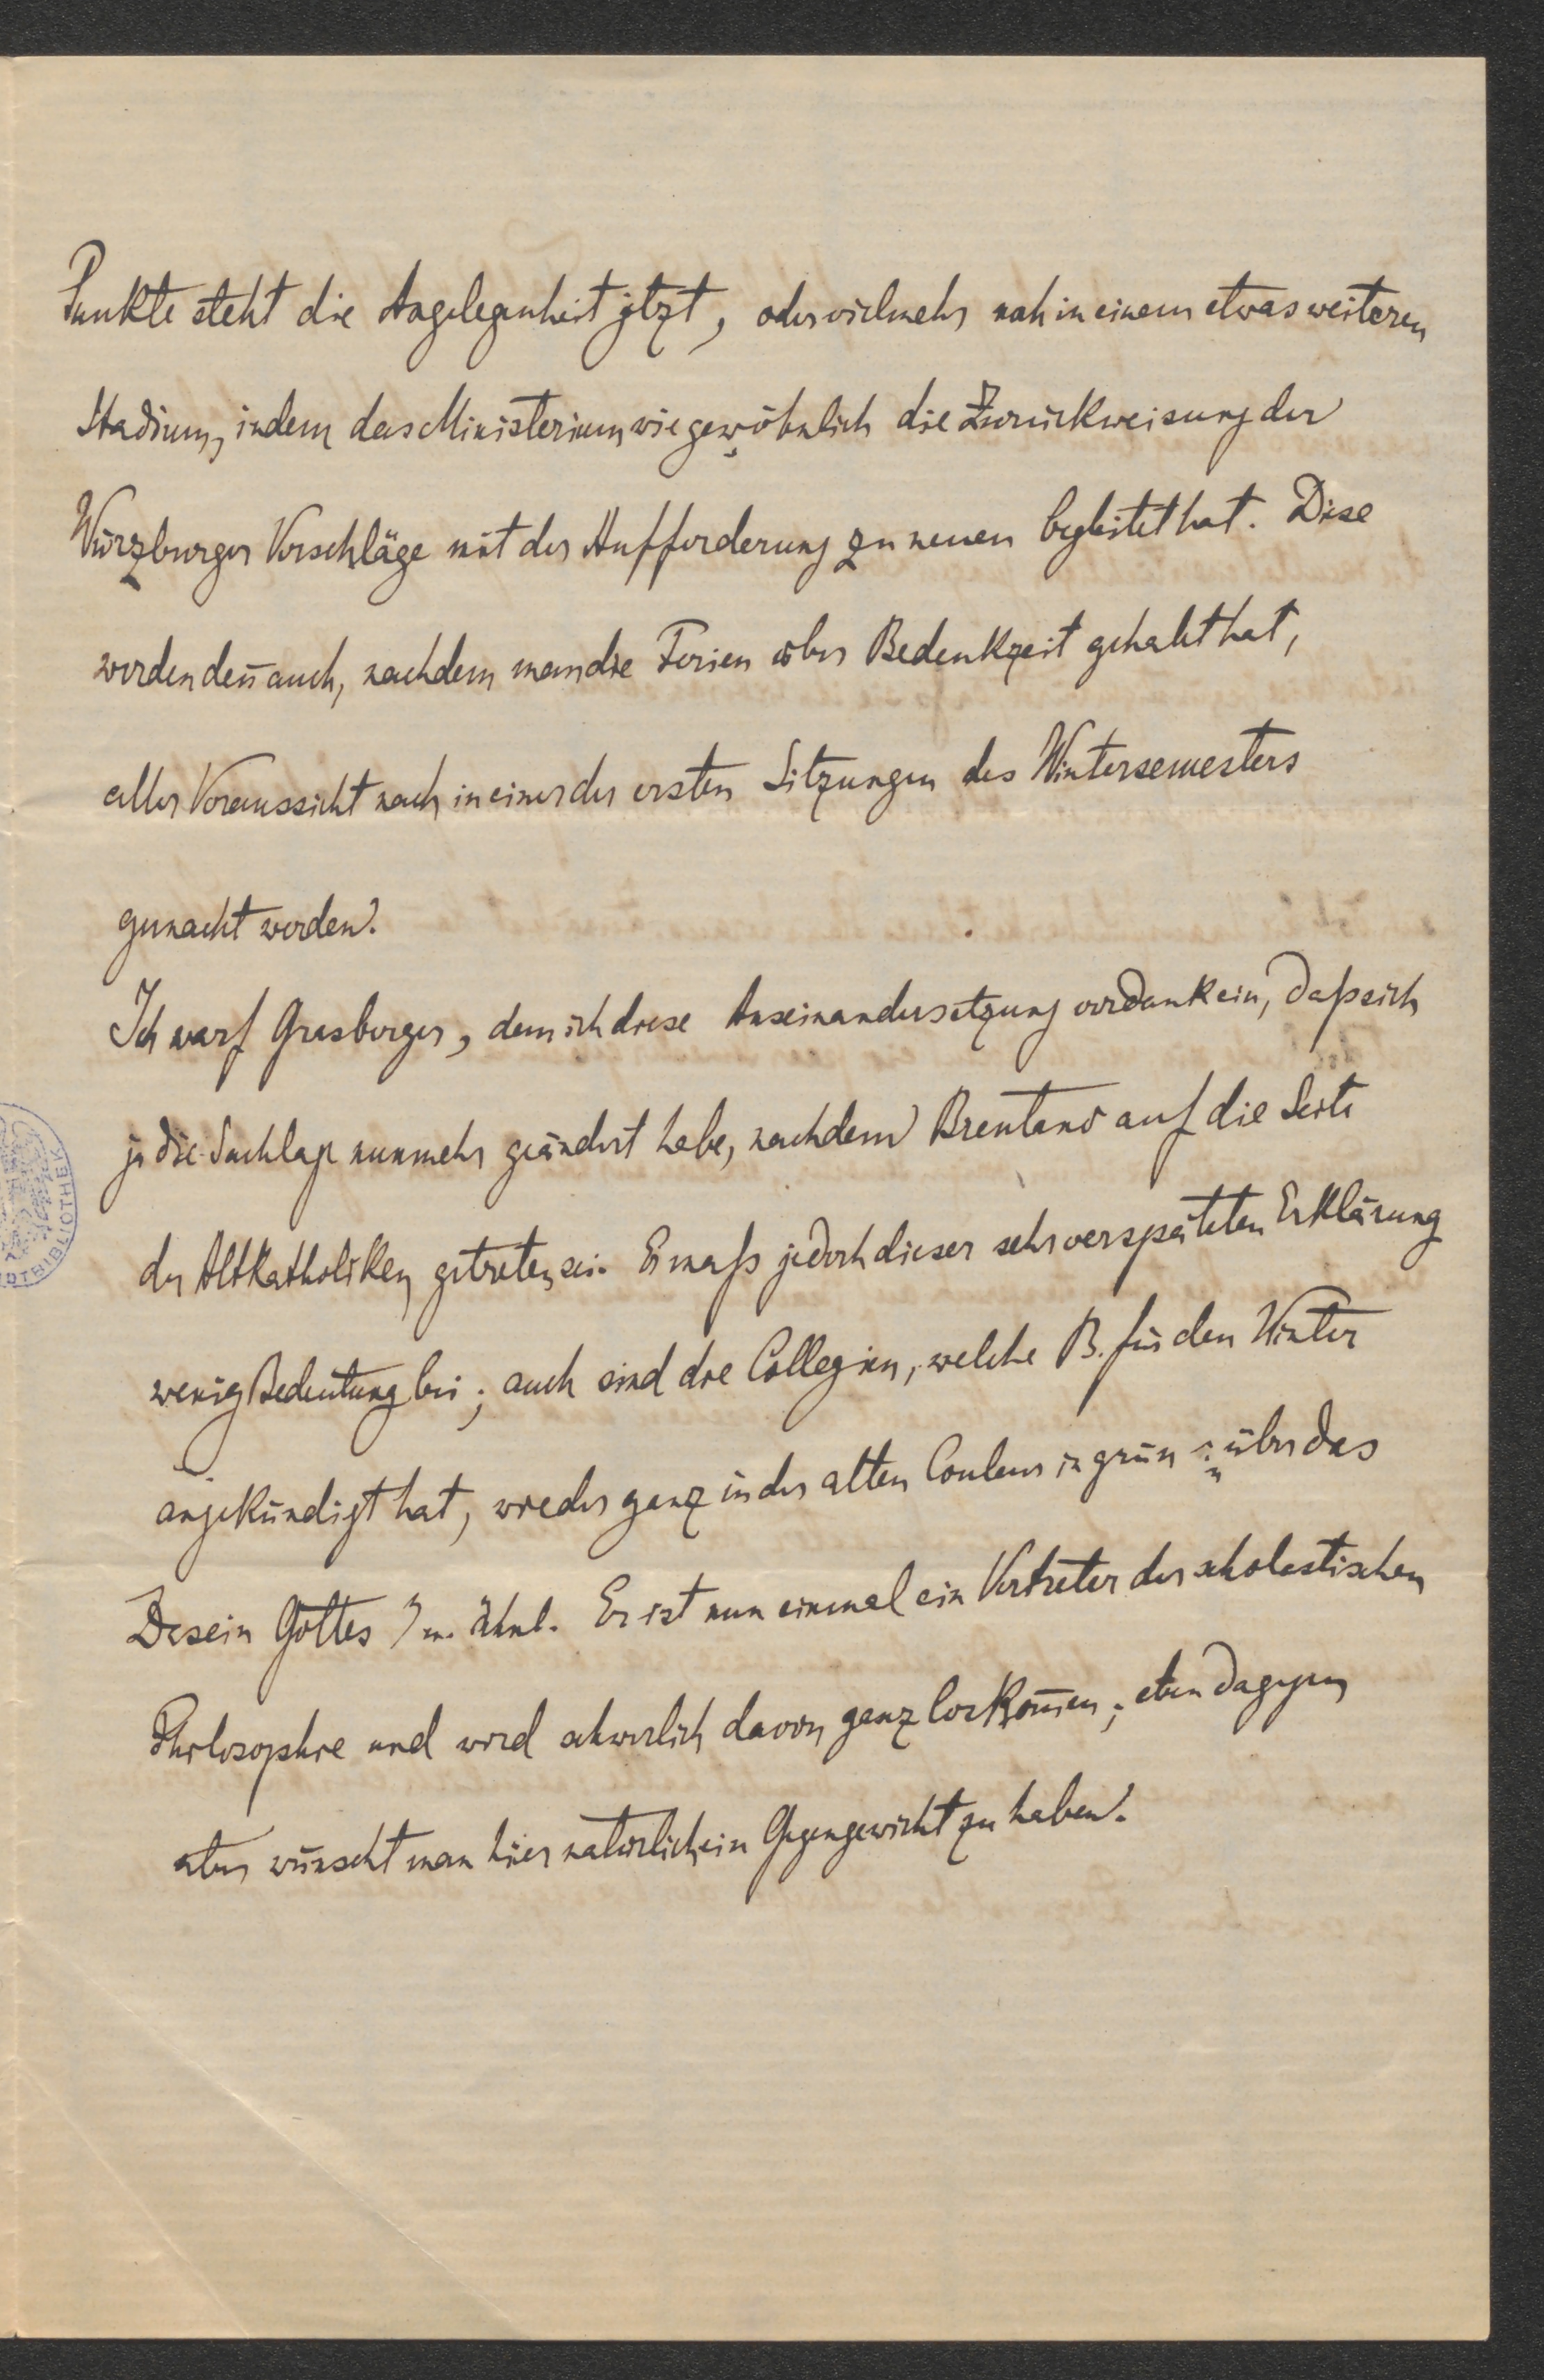 Punkte steht die Angelegenheit jetzt, oder vielmehr noch in einem etwas weiteren
Stadium, indem das Ministerium wie gewöhnlich die Zurückweisung der
Würzburger Vorschläge mit der Aufforderung zu neuen begleitet hat. Diese
werden deñ auch, nachdem man die Ferien über Bedenkzeit gehabt hat,
aller Voraussicht nach in einer der ersten Sitzungen des Wintersemesters
gemacht werden.
Ich warf Grasberger, dem ich diese Auseinandersetzung verdank ein, daß sich
ja die Sachlage nunmehr geändert habe, nachdem Brentano auf die Seite
der Altkatholiken getreten sei. Er maß jedoch dieser sehr verspäteten Erklärung
wenig Bedeutung bei; auch sind die Collegien, welche B. für den Winter
angekündigt hat, wieder ganz in der alten Couleur in grün: „über das
Dasein Gottes“ u. ähnl. Er ist nun einmal ein Vertreter der scholastischen
Philosophie und wird schwerlich davon ganz loskom̄en; eben dagegen
aber wünscht man hier natürlich ein Gegengewicht zu haben.
BIBLIOTHEK